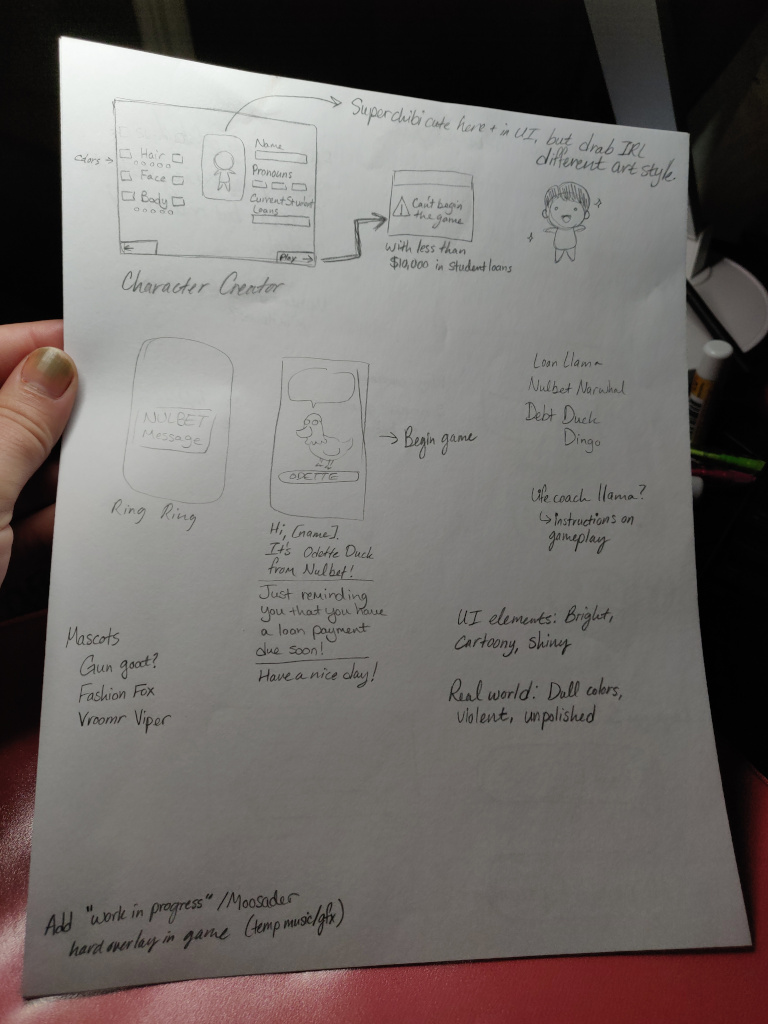 Superchibi cute here + in UI, but drab IRL
different art style.
Colors →
Hair
Face
Body
Name
Pronouns
Current Student
Loans
←
Play →
Can't begin
the game
with less than
$10,000 in student loans
Character Creator
NULBET
Message
Ring Ring
ODETTE
→ Begin game
Hi, [name].
It's Odette Duck
from Nulbet!
Just reminding
you that you have
a loan payment
due soon!
Have a nice day!
Loan Llama
Nulbet Narwhal
Debt Duck
Dingo
Life coach llama?
↳ instructions on
gameplay
Mascots
Gun goat?
Fashion Fox
Vroomr Viper
UI elements: Bright,
cartoony, shiny
Real world: Dull colors,
violent, unpolished
Add "work in progress" / Moosader
hard overlay in game (temp music/gfx)